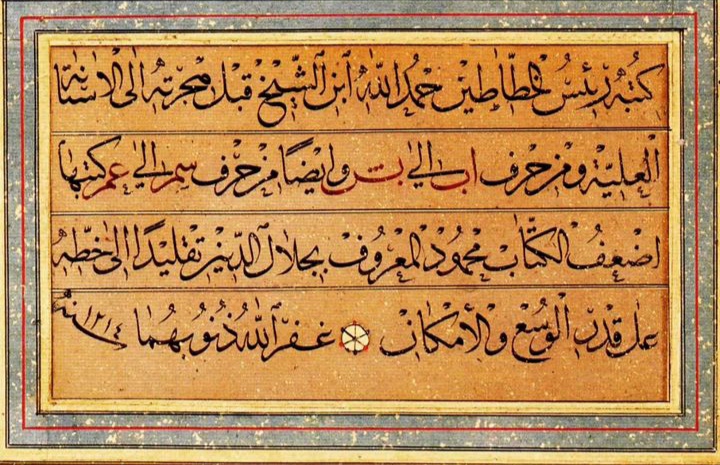 كتبه رئيس الخطاطين حمد الله ابن الشيخ قبل هجرته الى الاستانة
العلية ومن حرف اب الى بت وايضا من حرف سم الى عم كتبها
اضعف الكتاب محمود المعروف بجلال الدين تقليدا الى خطه
على قدر الوسع والامكان غفر الله ذنوبهما سنة ١٢١٤